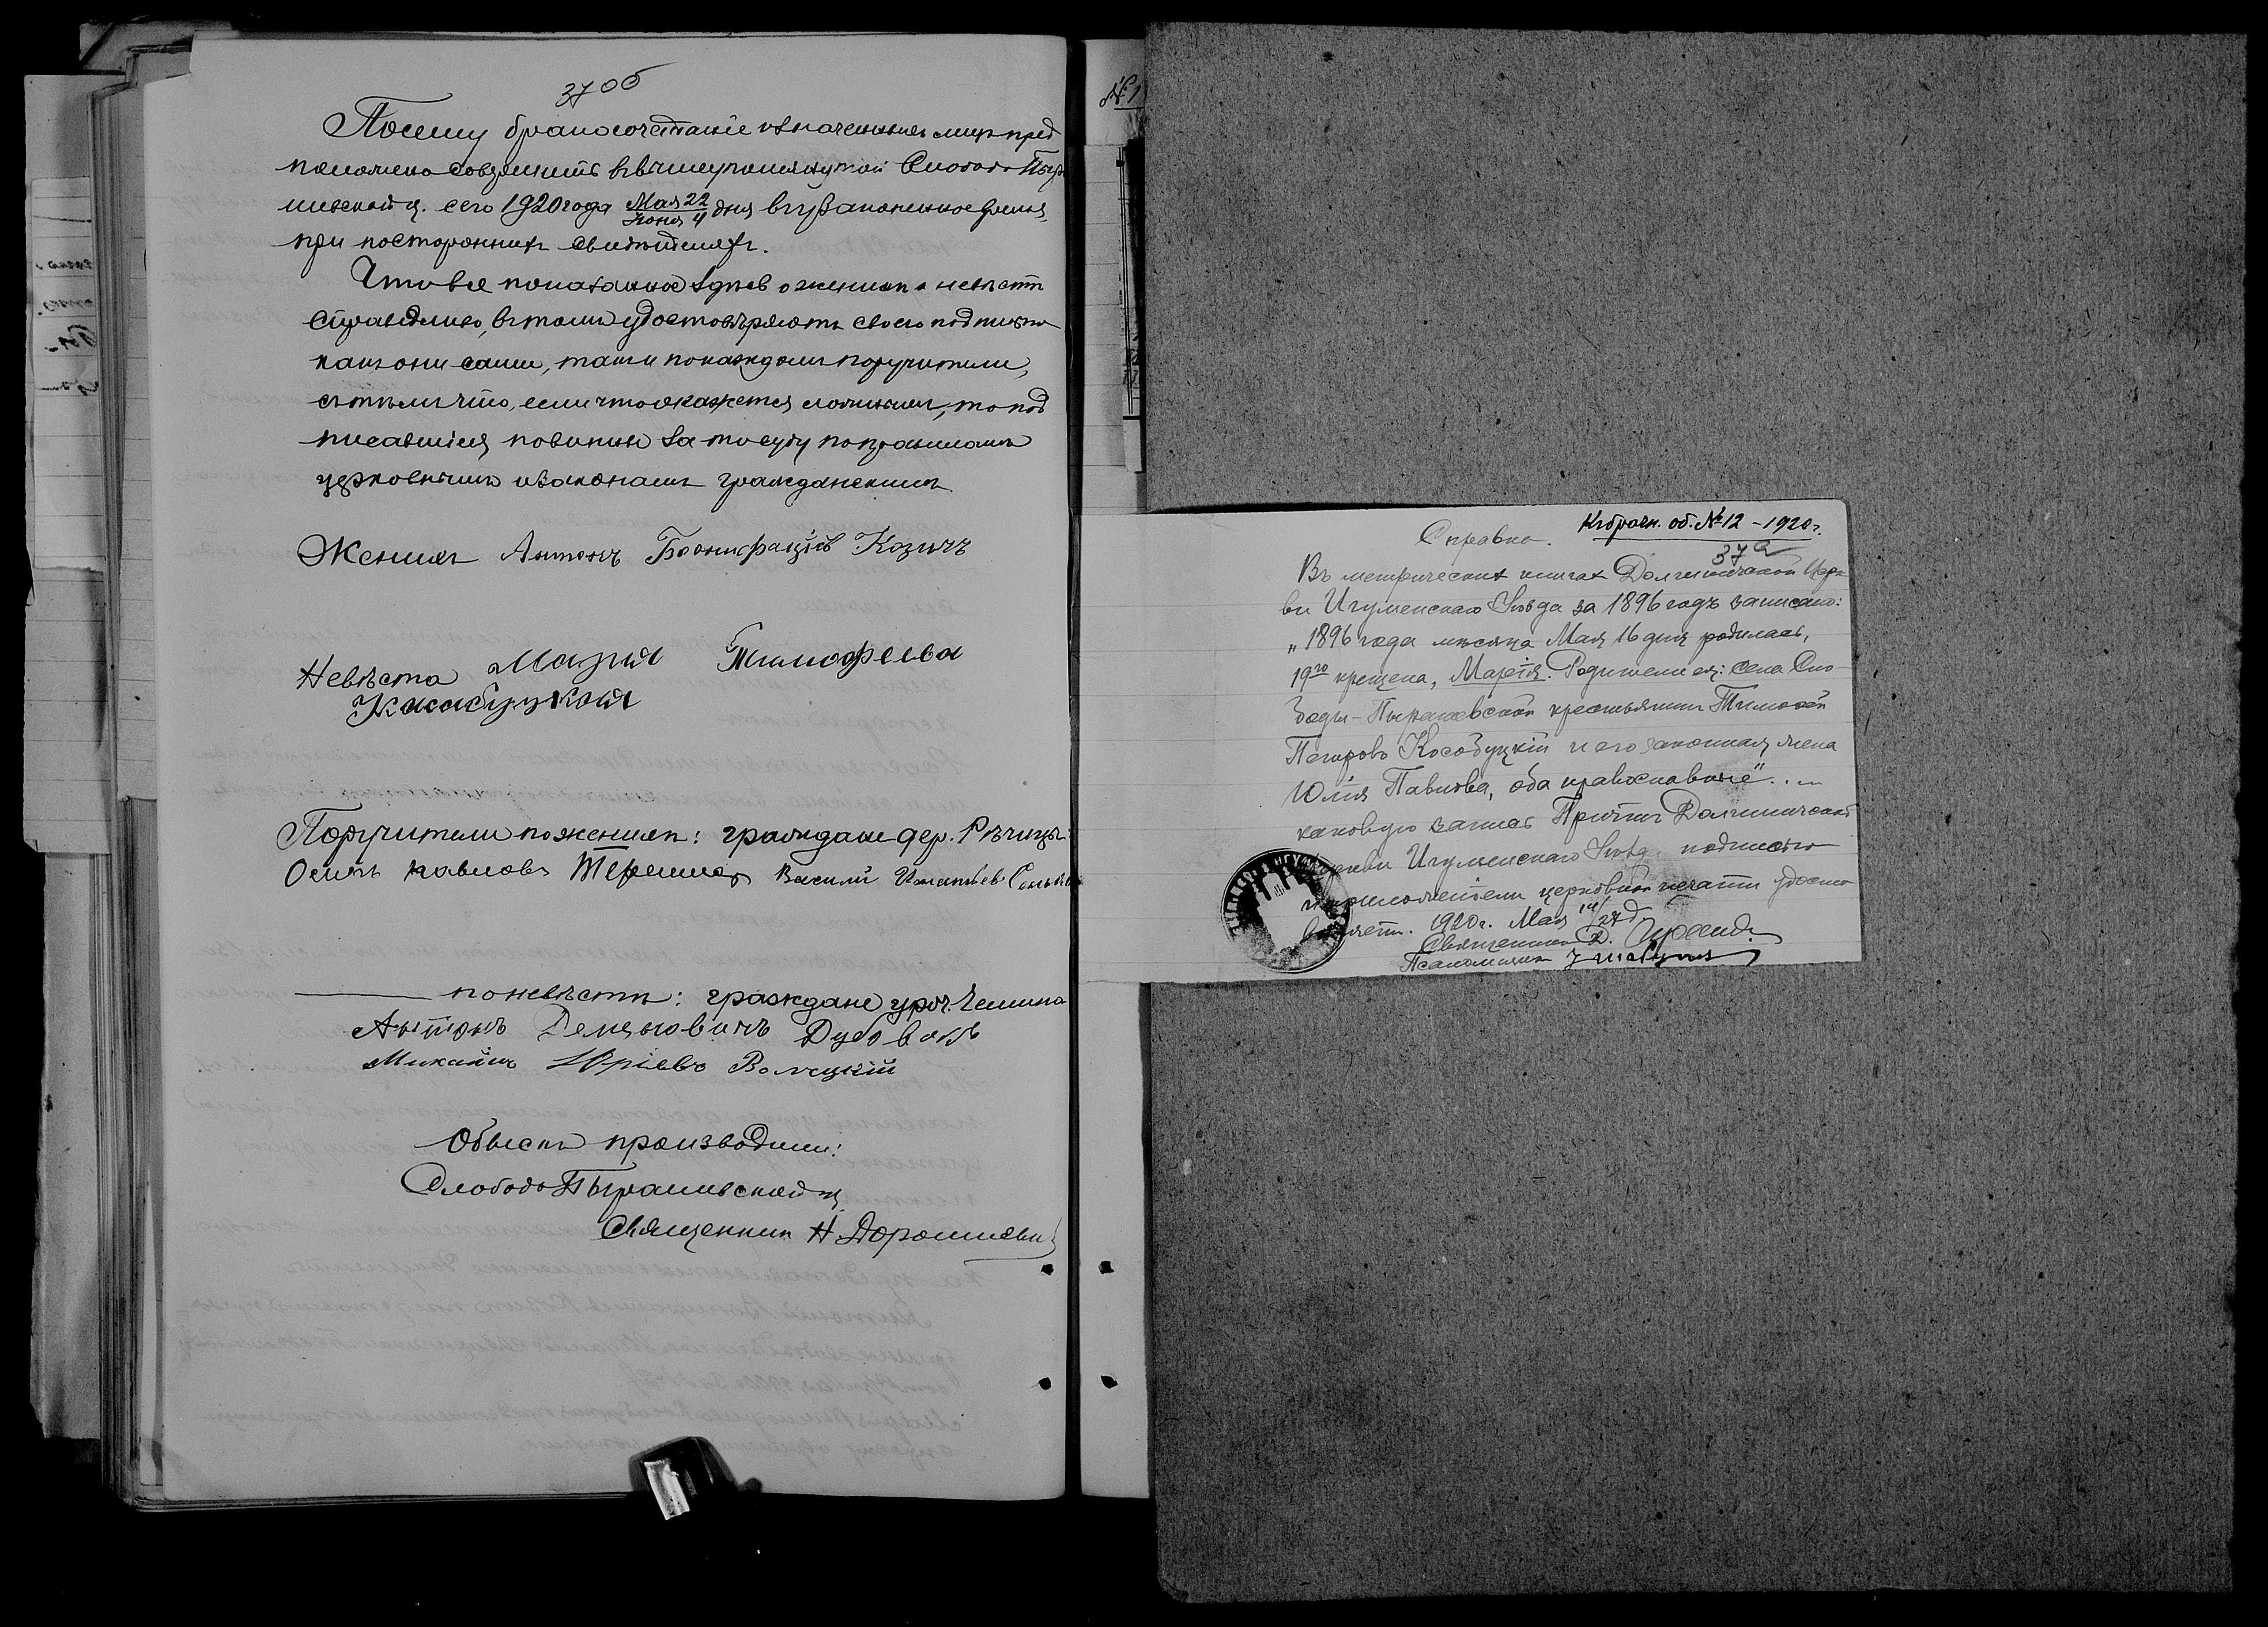 37 об
Посему бракосочетаніе означенныхъ лицъ пред
положено совершить въ вышеупомянутой Слободо-Пыр
шевской ц. сего 1920 года Мая 22 / Іюня 4 дня въ узаконенное время,
при постороннихъ свидѣтеляхъ.
Что все показанное здѣсь о женихѣ и невѣстѣ
справедливо, въ томъ удостовѣряютъ своею подписью
какъ они сами, такъ и по каждомъ поручители,
съ тѣмъ что, если что окажется ложнымъ, то под
писавшіеся повинны за то суду по правиламъ
церковнымъ и законамъ гражданскимъ
Женихъ Антонъ Бонифаціевъ Козичъ
Невѣста Марія Тимофеева
Касабуцкая
Поручители по женихѣ: граждане дер. Рѣчицы:
Осипъ Павловъ Василій Игнатьев
по невѣстѣ: граждане уроч.
Антонъ Демьяновичъ Дубовикъ
Михаилъ Юріевъ Волчецкій
Обыскъ производили:
Слободо Пырашевской ц.
Священник Н. Дорошевич
№ 1
Къ брачн. об. № 12 – 1920 г.
Справка.
37 а
Въ метрическихъ книгахъ Долгиничской Церк
ви Игуменскаго Уѣзда за 1896 годъ записано:
„1896 года мѣсяца Мая 16 дня родилась,
19го крещена, Марія. Родители ея: села Сло
боды-Пырашевской крестьянинъ Тимоѳей
Петровъ Кособуцкій и его законная жена
Юлія Павлова, оба православные"...
каковую запись Причтъ Долгиничской
Церкви Игуменскаго Уѣзда подписью
и приложеніемъ церковной печати удосто
вѣряетъ. 1920 г. Мая 14/27 д.
Священникъ Д.
Псаломщикъ